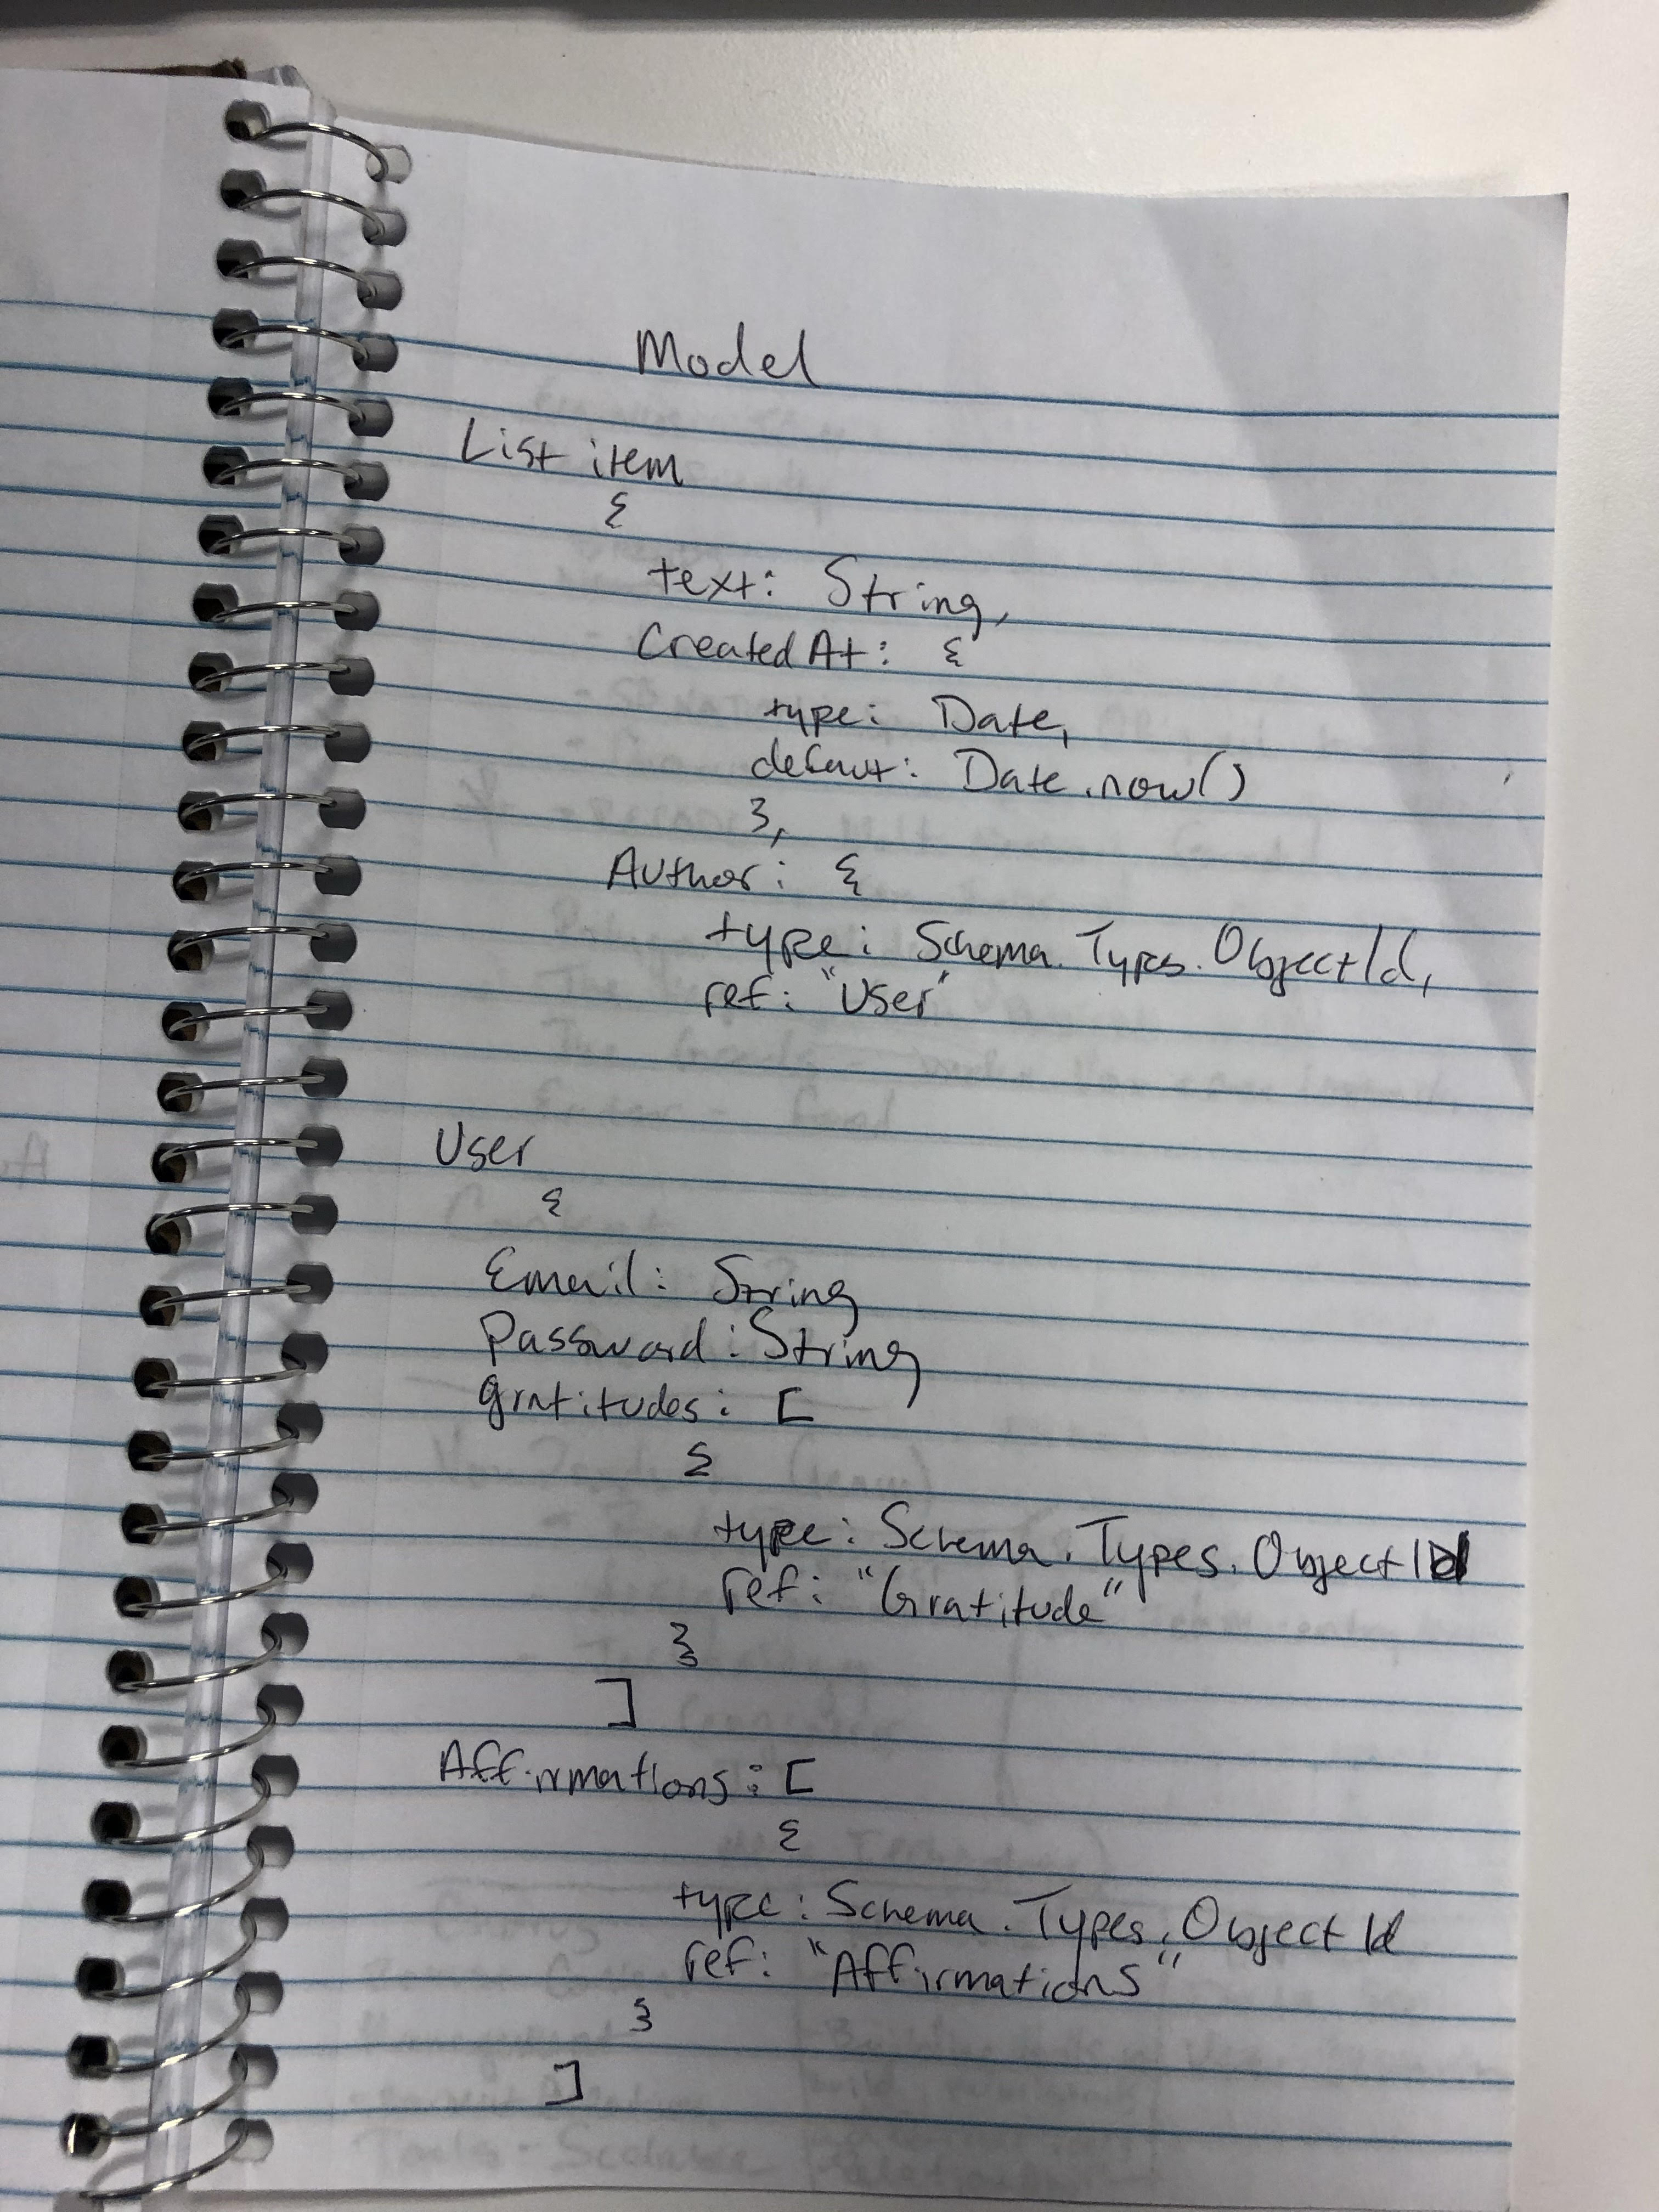 Model
List item
{
text: String,
Created At: {
type: Date,
default: Date.now()
},
Author: {
type: Schema.Types.ObjectId,
ref: "User"
User
{
Email: String
Password: String
gratitudes: [
{
type: Schema.Types.ObjectId
ref: "Gratitude"
}
]
Affirmations: [
{
type: Schema.Types.ObjectId
ref: "Affirmations"
}
]